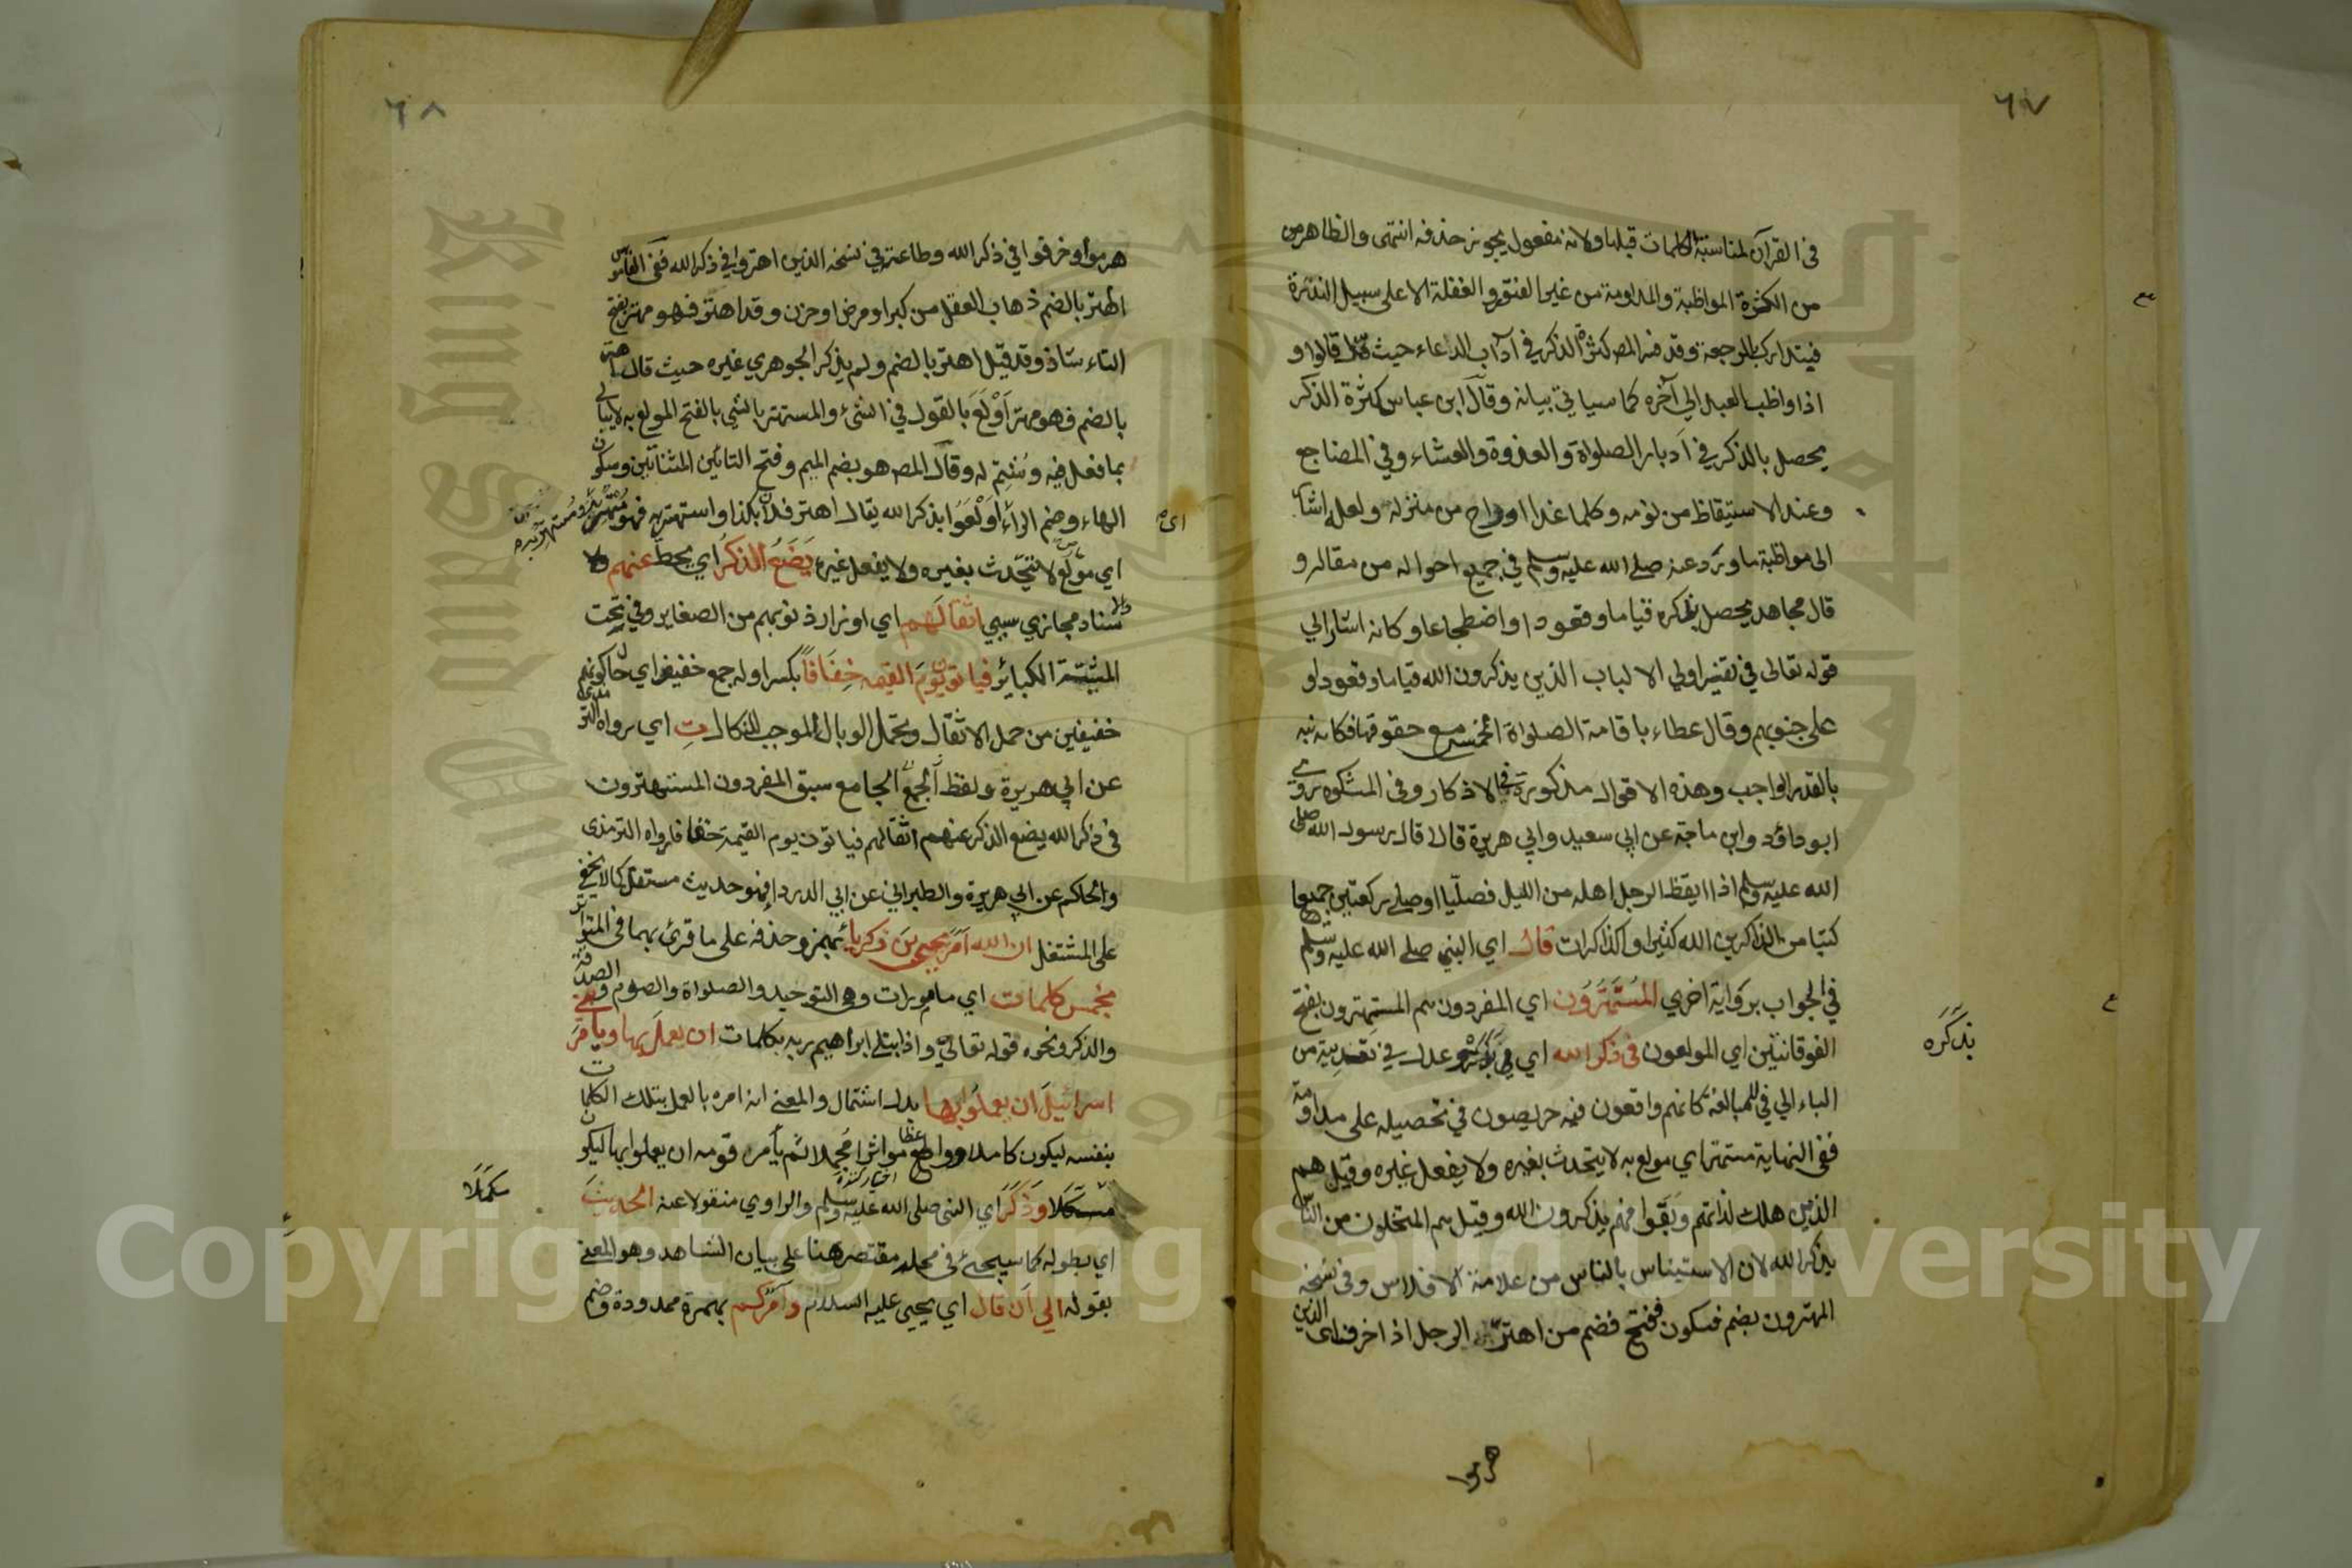 ٦٧
في القرآن لمناسبة الكلمات قبلها ولانه مفعول يجوز حذفه انتهى والظاهر من
من الكثرة المواظبة والمداومة من غير الفتور والغفلة الا على سبيل الندرة
فيتدارك بالرجعة وقد فسر المص كثرة الذكر في آداب الدعاء حيث قالوا و
اذا واظب العبد الي آخره كما سياتي بيانه وقال ابن عباس كثرة الذكر
يحصل بالذكر في ادبار الصلواة والغدوة والعشاء وفي المضاجع
وعند الاستيقاظ من نومه وكلما غدا او راح من منزله ولعله اشار
الى مواظبة ما ورد عنه صلى الله عليه وسلم في جميع احواله من مقاله و
قال مجاهد يحصل بذكره قياما وقعودا واضطجاعا وكانه اشار الي
قوله تعالى في تفسير اولي الالباب الذين يذكرون الله قياما وقعودا و
على جنوبهم وقال عطاء باقامة الصلواة الخمس مع حقوقها فكانه نبه
بالقدر الواجب وهذه الاقوال مذكورة في الاذكار وفي المشكوة روي
ابو داؤد وابن ماجة عن ابي سعيد وابي هريرة قالا قال رسول الله صلى
الله عليه وسلم اذا ايقظ الرجل اهله من الليل فصليا او صلى ركعتين جميعا
كتبا من الذاكرين الله كثيرا والذاكرات قال اي النبي صلى الله عليه وسلم
في الجواب برواية اخري المستهترون اي المفردون هم المستهترون بفتح
الفوقانيتين اي المولعون في ذكر الله اي بذكره وعدل في تعديته من
بذكره
الباء الي في للمبالغة كانهم واقعون فيه حريصون في تحصيله على مداومة
ففي النهاية مستهتر اي مولع به لا يتحدث بغيره ولا يفعل غيره وقيل هم
الذين هلك لذاتهم وبقوا فهم يذكرون الله وقيل هم المتخلون من الناس
بذكر الله لان الاستيناس بالناس من علامة الافلاس وفي نسخة
المهترون بضم فسكون ففتح فضم من اهتر الرجل اذا خرف اي الذين
هرموا
٦٨
هرموا وخرفوا في ذكر الله وطاعته وفي نسخة الذين اهتروا في ذكر الله ففي القاموس
الهتر بالضم ذهاب العقل من كبر او مرض او حزن وقد اهتر فهو مهتر بفتح
التاء شاذ وقد قيل اهتر بالضم ولم يذكر الجوهري غيره حيث قال اهتر
بالضم فهو مهتر اولع بالقول في الشئ والمستهتر بالشئ بالفتح المولع به لا يبالي
بما فعل فيه وشتم له وقال المص هو بضم الميم وفتح التائين المثناتين وسكون
الهاء وضم الراء اي اولعوا بذكر الله يقال اهتر فلان بكذا واستهتر به فهو مهتر به ومستهتر به
اي مولع لا يتحدث بغيره ولا يفعل غيره يضع الذكر اي يحط عنهم
والاسناد مجازي سببي اثقالهم اي اوزار ذنوبهم من الصغاير وفي تحت
المشيئة الكبائر فياتون يوم القيمة خفافا بكسر اوله جمع خفيف اي حال كونهم
خفيفين من حمل الاثقال وتحمل الوبال الموجب للنكال ت اي رواه الترمذي
عن ابي هريرة ولفظ الجامع سبق المفردون المستهترون
في ذكر الله يضع الذكر عنهم اثقالهم فياتون يوم القيمة خفافا رواه الترمذي
والحاكم عن ابي هريرة والطبراني عن ابي الدرداء فهو حديث مستقل كما لا يخفى
على المشتغل ان الله امر يحيى بن زكرياء بهمز وحذفه على ما قرئ بهما في المتواتر
بخمس كلمات اي مامورات وهي التوحيد والصلواة والصوم والصدقة
والذكر ونحوه قوله تعالى واذ ابتلى ابراهيم ربه بكلمات ان يعمل بها ويامر بني
اسرائيل ان يعملوا بها بدل اشتمال والمعنى انه امره بالعمل بتلك الكلمات
بنفسه ليكون كاملا ووا مواثرا مجملا ثم يأمره قومه ان يعملوا بها ليكون
مكملا وذكر اي النبي صلى الله عليه وسلم والراوي منقولا عنه الحديث
مكملا
اي بطوله كما سيجئ في محله مقتصر هنا على بيان الشاهد وهو المعنى
بقوله الي ان قال اي يحيى عليه السلام وآمركم بهمزة ممدودة وضم
Copyright © King Saud University
King Saud University
1957